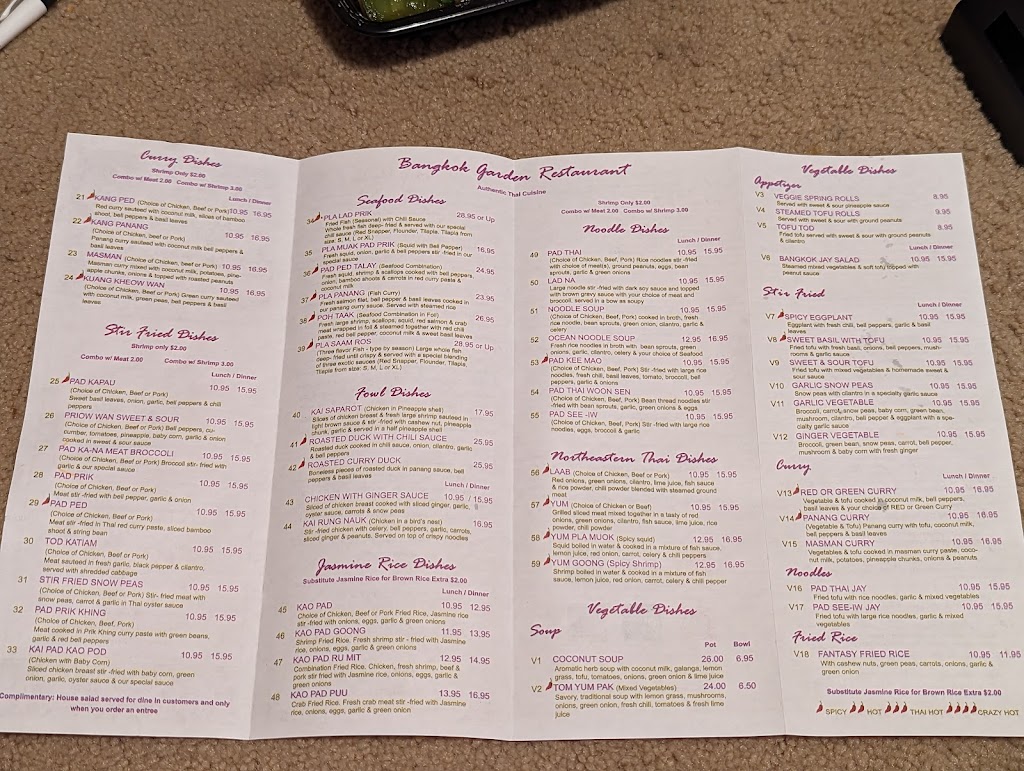 Bangkok Garden Restaurant
Authentic Thai Cuisine
Curry Dishes
Shrimp Only $2.00
Combo w/ Meat 2.00 Combo w/ Shrimp 3.00
Lunch / Dinner
21 KANG PED (Choice of Chicken, Beef or Pork) 10.95 16.95
Red curry sauteed with coconut milk, slices of bamboo
shoot, bell peppers & basil leaves
22 KANG PANANG 10.95 16.95
(Choice of Chicken, Beef, or Pork)
Panang curry sauteed with coconut milk bell peppers &
basil leaves
23 MASMAN (Choice of Chicken, beef or Pork) 10.95 16.95
Masman curry mixed with coconut milk, potatoes, pine-
apple chunks, onions & topped with roasted peanuts
24 KUANG KHEOW WAN 10.95 16.95
(Choice of Chicken, Beef or Pork) Green curry sauteed
with coconut milk, green peas, bell peppers & basil
leaves
Stir Fried Dishes
Shrimp only $2.00
Combo w/ Meat 2.00 Combo w/ Shrimp 3.00
Lunch / Dinner
25 PAD KAPAU 10.95 15.95
(Choice of Chicken, Beef or Pork)
Sweet basil leaves, onion, garlic, bell peppers & chili
peppers
26 PRIOW WAN SWEET & SOUR 10.95 15.95
(Choice of Chicken, Beef or Pork) Bell peppers, cu-
cumber, tomatoes, pineapple, baby corn, garlic & onion
cooked in sweet & sour sauce
27 PAD KA-NA MEAT BROCCOLI 10.95 15.95
(Choice of Chicken, Beef or Pork) Broccoli stir- fried with
garlic & our special sauce
28 PAD PRIK 10.95 15.95
(Choice of Chicken, Beef or Pork)
Meat stir -fried with bell pepper, garlic & onion
29 PAD PED 10.95 15.95
(Choice of Chicken, Beef or Pork)
Meat stir -fried in Thai red curry paste, sliced bamboo
shoot & string bean
30 TOD KATIAM 10.95 15.95
(Choice of Chicken, Beef or Pork)
Meat sauteed in fresh garlic, black pepper & cilantro,
served with shredded cabbage
31 STIR FRIED SNOW PEAS 10.95 15.95
(Choice of Chicken, Beef or Pork) Stir- fried meat with
snow peas, carrot & garlic in Thai oyster sauce
32 PAD PRIK KHING 10.95 15.95
(Choice of Chicken, Beef, Pork)
Meat cooked in Prik Khing curry paste with green beans,
garlic & red bell peppers
33 KAI PAD KAO POD 10.95 15.95
(Chicken with Baby Corn)
Sliced chicken breast stir -fried with baby corn, green
onion, garlic, oyster sauce & our special sauce
Complimentary: House salad served for dine in customers and only
when you order an entree
Seafood Dishes
34 PLA LAD PRIK 28.95 or Up
Fried Fish (Seasonal) with Chili Sauce
Whole fresh fish deep- fried & served with our special
chili sauce (Red Snapper, Flounder, Tilapia, Tilapia from
size: S, M, L or XL)
35 PLA MUAK PAD PRIK (Squid with Bell Pepper) 16.95
Fresh squid, onion, garlic & bell peppers stir -fried in our
special sauce
36 PAD PED TALAY (Seafood Combination) 24.95
Fresh squid, shrimp & scallops cooked with bell peppers,
onion, bamboo shoots & carrots in red curry pasta &
coconut milk
37 PLA PANANG (Fish Curry) 23.95
Fresh salmon filet, bell pepper & basil leaves cooked in
our panang curry sauce. Served with steamed rice
38 POH TAAK (Seafood Combination in Foil) 26.95
Fresh large shrimp, scallops, squid, red salmon & crab
meat wrapped in foil & steamed together with red chili
paste, red bell pepper, coconut milk & sweet basil leaves
39 PLA SAAM ROS 28.95 or Up
(Three flavor Fish - type by season) Large whole fish
deep- fried until crispy & served with a special blending
of three exotic sauces (Red Snapper, Flounder, Tilapia,
Tilapia from size: S, M, L or XL)
Fowl Dishes
40 KAI SAPAROT (Chicken in Pineapple shell) 17.95
Slices of chicken breast & fresh large shrimp sauteed in
light brown sauce & stir -fried with cashew nut, pineapple
chunk, garlic & served in a half pineapple shell
41 ROASTED DUCK WITH CHILI SAUCE 25.95
Roasted duck cooked in chili sauce, onion, cilantro, garlic
& bell peppers
42 ROASTED CURRY DUCK 25.95
Boneless pieces of roasted duck in panang sauce, bell
peppers & basil leaves
Lunch / Dinner
43 CHICKEN WITH GINGER SAUCE 10.95 / 15.95
Sliced of chicken breast cooked with sliced ginger, garlic,
oyster sauce, carrots & snow peas
44 KAI RUNG NAUK (Chicken in a bird's nest) 16.95
Stir -fried chicken with celery, bell peppers, garlic, carrots,
sliced ginger & peanuts. Served on top of crispy noodles
Jasmine Rice Dishes
Substitute Jasmine Rice for Brown Rice Extra $2.00
Lunch / Dinner
45 KAO PAD 10.95 12.95
Choice of Chicken, Beef or Pork Fried Rice, Jasmine rice
stir -fried with onions, eggs, garlic & green onions
46 KAO PAD GOONG 11.95 13.95
Shrimp Fried Rice. Fresh shrimp stir - fried with Jasmine
rice, onions, eggs, garlic & green onions
47 KAO PAD RU MIT 12.95 14.95
Combination Fried Rice. Chicken, fresh shrimp, beef &
pork stir fried with Jasmine rice, onions, eggs, garlic &
green onions
48 KAO PAD PUU 13.95 16.95
Crab Fried Rice. Fresh crab meat stir -fried with Jasmine
rice, onions, eggs, garlic & green onion
Shrimp Only $2.00
Combo w/ Meat 2.00 Combo w/ Shrimp 3.00
Noodle Dishes
Lunch / Dinner
49 PAD THAI 10.95 15.95
(Choice of Chicken, Beef, Pork) Rice noodles stir -fried
with choice of meet(s), ground peanuts, eggs, bean
sprouts, garlic & green onions
50 LAD NA 10.95 15.95
Large noodle stir -fried with dark soy sauce and topped
with brown gravy sauce with your choice of meat and
broccoli, served in a bow as soupy
51 NOODLE SOUP 10.95 15.95
(Choice of Chicken, Beef, Pork) cooked in broth, fresh
rice noodle, bean sprouts, green onion, cilantro, garlic &
celery
52 OCEAN NOODLE SOUP 12.95 16.95
Fresh rice noodles in broth with bean sprouts, green
onions, garlic, cilantro, celery & your choice of Seafood
53 PAD KEE MAO 10.95 15.95
(Choice of Chicken, Beef, Pork) Stir -fried with large rice
noodles, fresh chili, basil leaves, tomato, broccoli, bell
peppers, garlic & onions
54 PAD THAI WOON SEN 10.95 15.95
(Choice of Chicken, Beef, Pork) Bean thread noodles stir
fried with bean sprouts, garlic, green onions & eggs
55 PAD SEE -IW 10.95 15.95
(Choice of Chicken, Beef, Pork) Stir -fried with large rice
noodles, eggs, broccoli & garlic
Northeastern Thai Dishes
56 LAAB (Choice of Chicken, Beef or Pork) 10.95 15.95
Red onions, green onions, cilantro, lime juice, fish sauce
& rice powder, chili powder blended with steamed ground
meat
57 YUM (Choice of Chicken or Beef) 10.95 15.95
Grilled sliced meat mixed together in a tasty of red
onions, green onions, cilantro, fish sauce, lime juice, rice
powder, chili powder
58 YUM PLA MUOK (Spicy squid) 12.95 16.95
Squid boiled in water & cooked in a mixture of fish sauce,
lemon juice, red onion, carrot, celery & chili pepper
59 YUM GOONG (Spicy Shrimp) 12.95 16.95
Shrimp boiled in water & cooked in a mixture of fish
sauce, lemon juice, red onion, carrot, celery & chili pepper
Vegetable Dishes
Soup
Pot Bowl
V1 COCONUT SOUP 26.00 6.95
Aromatic herb soup with coconut milk, galanga, lemon
grass, tofu, tomatoes, onions, green onion & lime juice
V2 TOM YUM PAK (Mixed Vegetables) 24.00 6.50
Savory, traditional soup with lemon grass, mushrooms,
onions, green onion, fresh chili, tomatoes & fresh lime
juice
Vegetable Dishes
Appetizer
V3 VEGGIE SPRING ROLLS 8.95
Served with sweet & sour pineapple sauce
V4 STEAMED TOFU ROLLS 9.95
Served with sweet & sour with ground peanuts
V5 TOFU TOD 8.95
Fried tofu served with sweet & sour with ground peanuts
& cilantro
Lunch / Dinner
V6 BANGKOK JAY SALAD 10.95 15.95
Steamed mixed vegetables & soft tofu topped with
peanut sauce
Stir Fried
Lunch / Dinner
V7 SPICY EGGPLANT 10.95 15.95
Eggplant with fresh chili, bell peppers, garlic & basil
leaves
V8 SWEET BASIL WITH TOFU 10.95 15.95
Fried tofu with fresh basil, onions, bell peppers, mush-
rooms & garlic sauce
V9 SWEET & SOUR TOFU 10.95 15.95
Fried tofu with mixed vegetables & homemade sweet &
sour sauce
V10 GARLIC SNOW PEAS 10.95 15.95
Snow peas with cilantro in a specialty garlic sauce
V11 GARLIC VEGETABLE 10.95 15.95
Broccoli, carrot, snow peas, baby corn, green bean,
mushroom, cilantro, bell pepper & eggplant with a spe-
cialty garlic sauce
V12 GINGER VEGETABLE 10.95 15.95
Broccoli, green bean, snow peas, carrot, bell pepper,
mushroom & baby corn with fresh ginger
Curry
Lunch / Dinner
V13 RED OR GREEN CURRY 10.95 16.95
Vegetable & tofu cooked in coconut milk, bell peppers,
basil leaves & your choice of RED or GREEN Curry
V14 PANANG CURRY 10.95 16.95
(Vegetable & Tofu) Panang curry with tofu, coconut milk,
bell peppers & basil leaves
V15 MASMAN CURRY 10.95 16.95
Vegetables & tofu cooked in masman curry paste, coco-
nut milk, potatoes, pineapple chunks, onions & peanuts
Noodles
V16 PAD THAI JAY 10.95 15.95
Fried tofu with rice noodles, garlic & mixed vegetables
V17 PAD SEE-IW JAY 10.95 15.95
Fried tofu with large rice noodles, garlic & mixed
vegetables
Fried Rice
V18 FANTASY FRIED RICE 10.95 11.95
With cashew nuts, green peas, carrots, onions, garlic &
green onions
Substitute Jasmine Rice for Brown Rice Extra $2.00
SPICY HOT THAI HOT CRAZY HOT